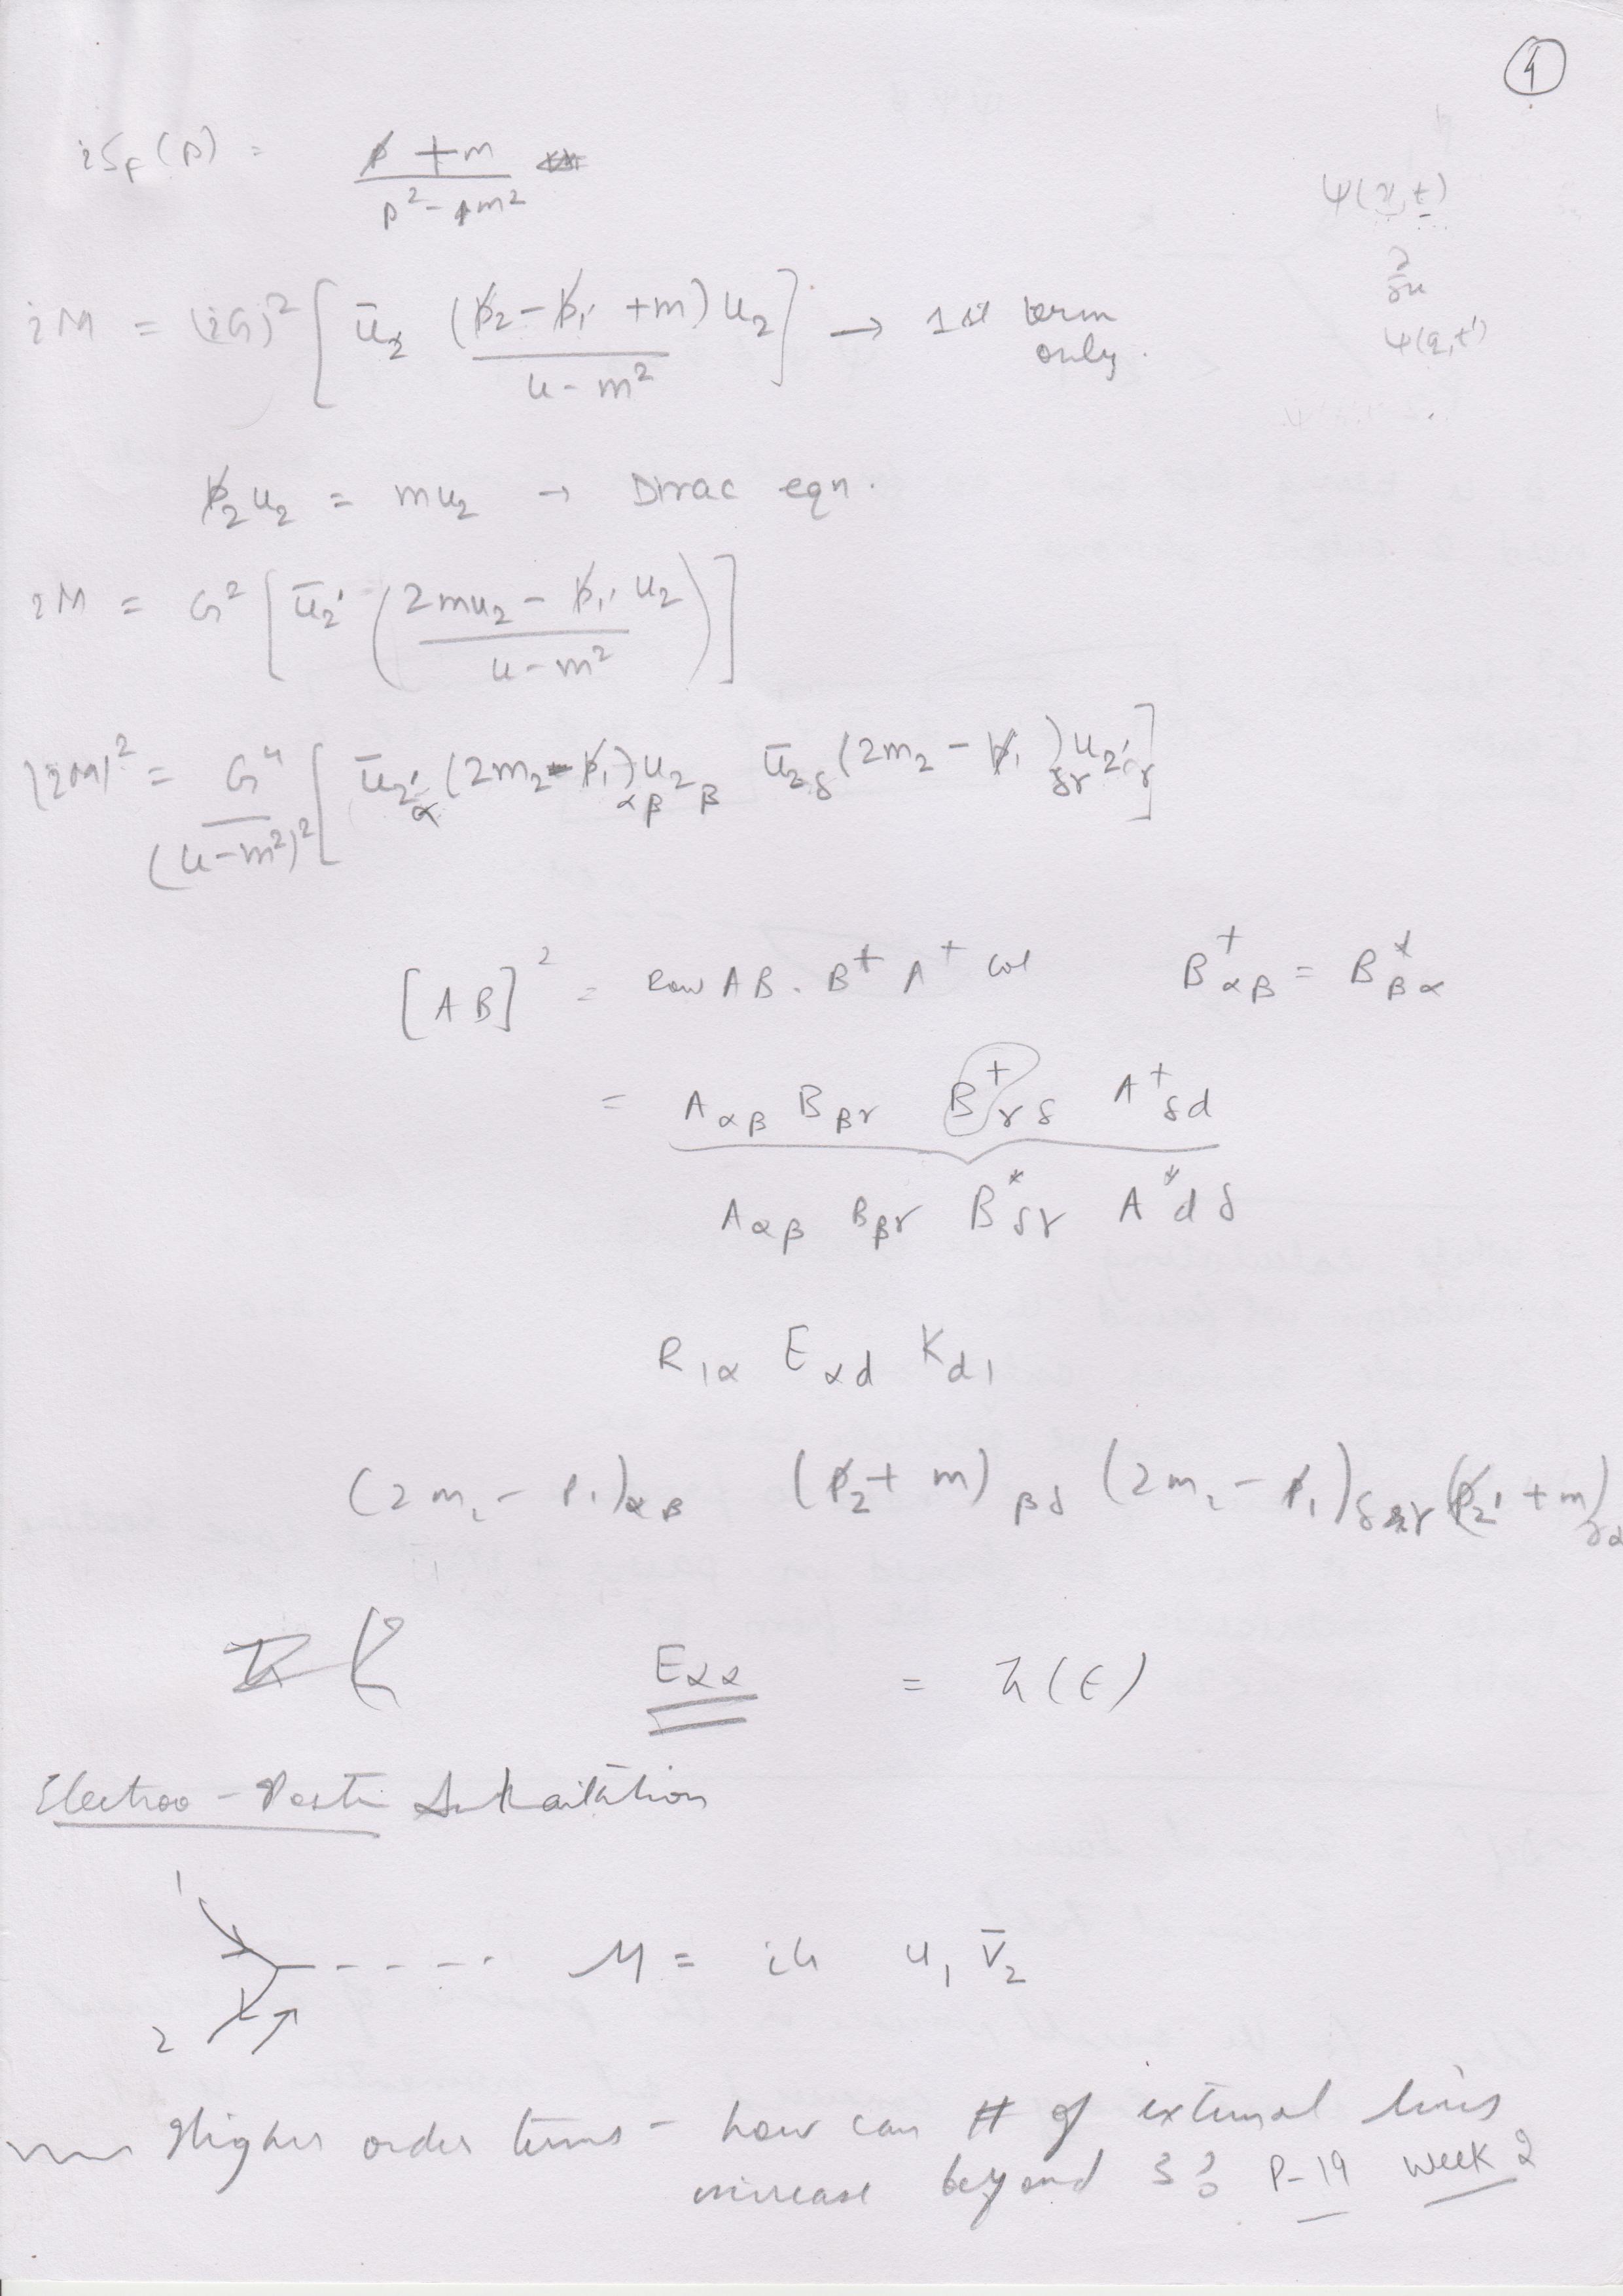 1
iS_F(p) = (p̸ + m) / (p² - m²)
ψ(x, t)
iM = (iG)² [ū_2 (p̸_2 - p̸_1' + m) u_2 / (u - m²)] → 1st term only.
ψ(q, t')
p̸_2 u_2 = m u_2 → Dirac eqn.
iM = G² [ū_2' ((2mu_2 - p̸_1' u_2) / (u - m²))]
|iM|² = G⁴ / (u - m²)² [ū_2'α (2m_2 - p̸_1)αβ u_2β ū_2δ (2m_2 - p̸_1)δγ u_2'γ]
[AB]² = Row AB . B⁺ A⁺ col B⁺αβ = B*βα
= Aαβ Bβγ B⁺γδ A⁺δd
Aαβ Bβγ B*δγ A*dδ
R_1α E_αd K_d1
(2m_2 - p_1)αβ (p̸_2 + m)βδ (2m_2 - p̸_1)δγ (p̸_2' + m)γα
E_αα = Tr(E)
Electron - Positron
1
M = iG u_1 v̄_2
2
Higher order terms - how can # of external lines
increase beyond 3? P-19 Week 2